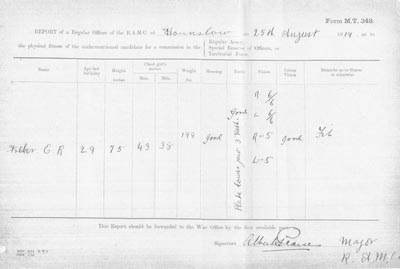 Form M.T. 348.
REPORT of a Regular Officer of the R.A.M.C. at Hounslow on 25th August 1914, as to
the physical fitness of the undermentioned candidate for a commission in the
Regular Army,
Special Reserve of Officers, or
Territorial Force.
Name Age last birthday Height inches Chest girth inches Max. Min. Weight lbs. Hearing Teeth Vision Colour Vision Remarks as to fitness or otherwise
R 6/6
L 6/6
C. R 29 75 43 38 198 good Good R-5 good Fit
Plate lower jaw 3 Teeth
L-5
This Report should be forwarded to the War Office by the first available post.
Signature Albert Pearse Major
R.A.M.C.